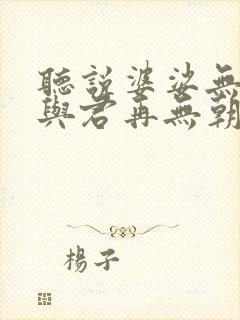 聽說婆娑無
與君再無朝
楊子